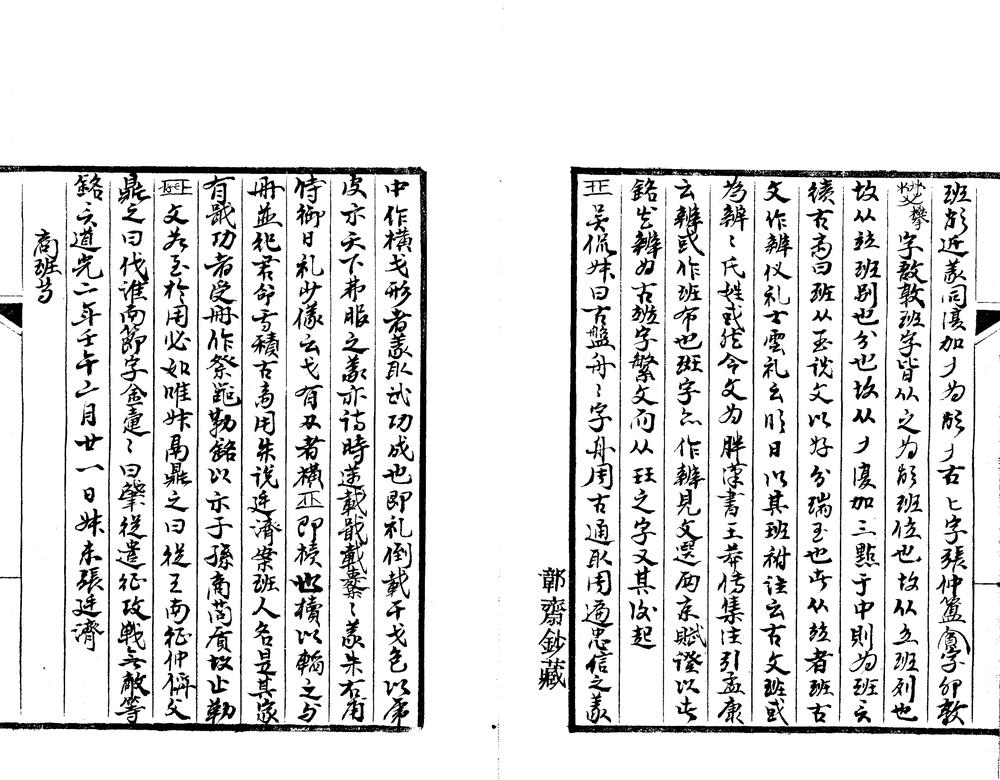 班頒近義同復加丿為頒丿古匕字張仲簠字卯敦
字敖敦班字皆从之為頒班位也故从立班列也
故从玨班别也分也故从丿復加三點于中則為班立
積古高曰班从玉说文以好分瑞玉也此从玨者班古
文作辨仪礼士虞礼云明日以其班祔注云古文班或
為辨辨氏姓或然今文为胖漢書王莽傳集注引孟康
云辨或作班布也班字亦作辨見文選西京賦證以此
銘尤辨为古班字繁文而从玨之字又其後起
吴侃妹曰古盤舟舟字舟周古通取周遍忠信之義
鄣齋鈔藏
中作橫戈形者義取武功成也即礼倒載干戈包以虎
皮示天下弗服之義亦詩時邁載戢載櫜櫜義朱右甫
侍御日礼少儀云戈有刃者横即櫝也櫝以輪之与
册並祀君命焉積古高用朱说廷濟案班人名是其家
有戰功者受册作祭勒銘以示子孫商質故止勒
文若至於周必如唯妹鬲鼎之曰從王南征仲偁父
鼎之曰伐淮南節字金壺曰肇從遣征攻戰無敵等
銘矣道光二年壬午二月廿一日妹未張廷濟
商班